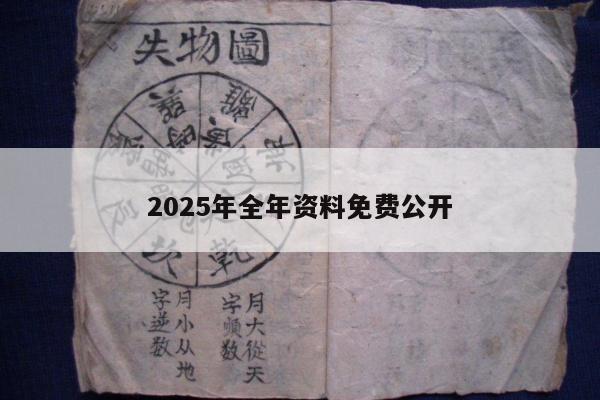 失物圖
離
艮
乾
2025年全年资料免费公开
月大從天
字順数
月小从地
字逆数